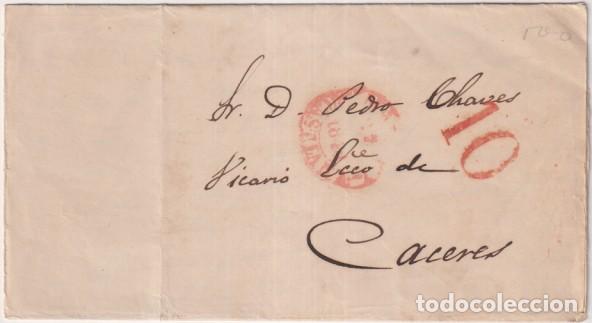 10
Sr. D. Pedro Chaves
Vicario Ecco de
Caceres
todocoleccion.net